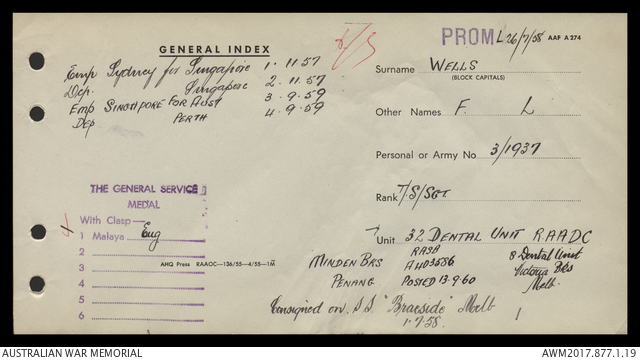 GENERAL INDEX
PROM L 26/7/58 AAF A 274
Emp Sydney for Singapore 1.11.57
Dep. Singapore 2.11.57
Emp SINGAPORE FOR AUST 3.9.59
Dep PERTH 4.9.59
Surname WELLS
(BLOCK CAPITALS)
Other Names F. L
Personal or Army No 3/1937
Rank T/S/SGT.
Unit 32 DENTAL UNIT R.A.A.D.C
THE GENERAL SERVICE
MEDAL
With Clasp
1 Malaya
2
3
4
5
6
AHQ Press RAAOC—136/55—4/55—1M
MINDEN BKS
PENANG
RASB
AHQ3586
POSTED 13.9.60
8 Dental Unit
Victoria Bks
Melb.
Consigned on S.S. "Braeside" Melb
1.7.58.
AUSTRALIAN WAR MEMORIAL
AWM2017.877.1.19